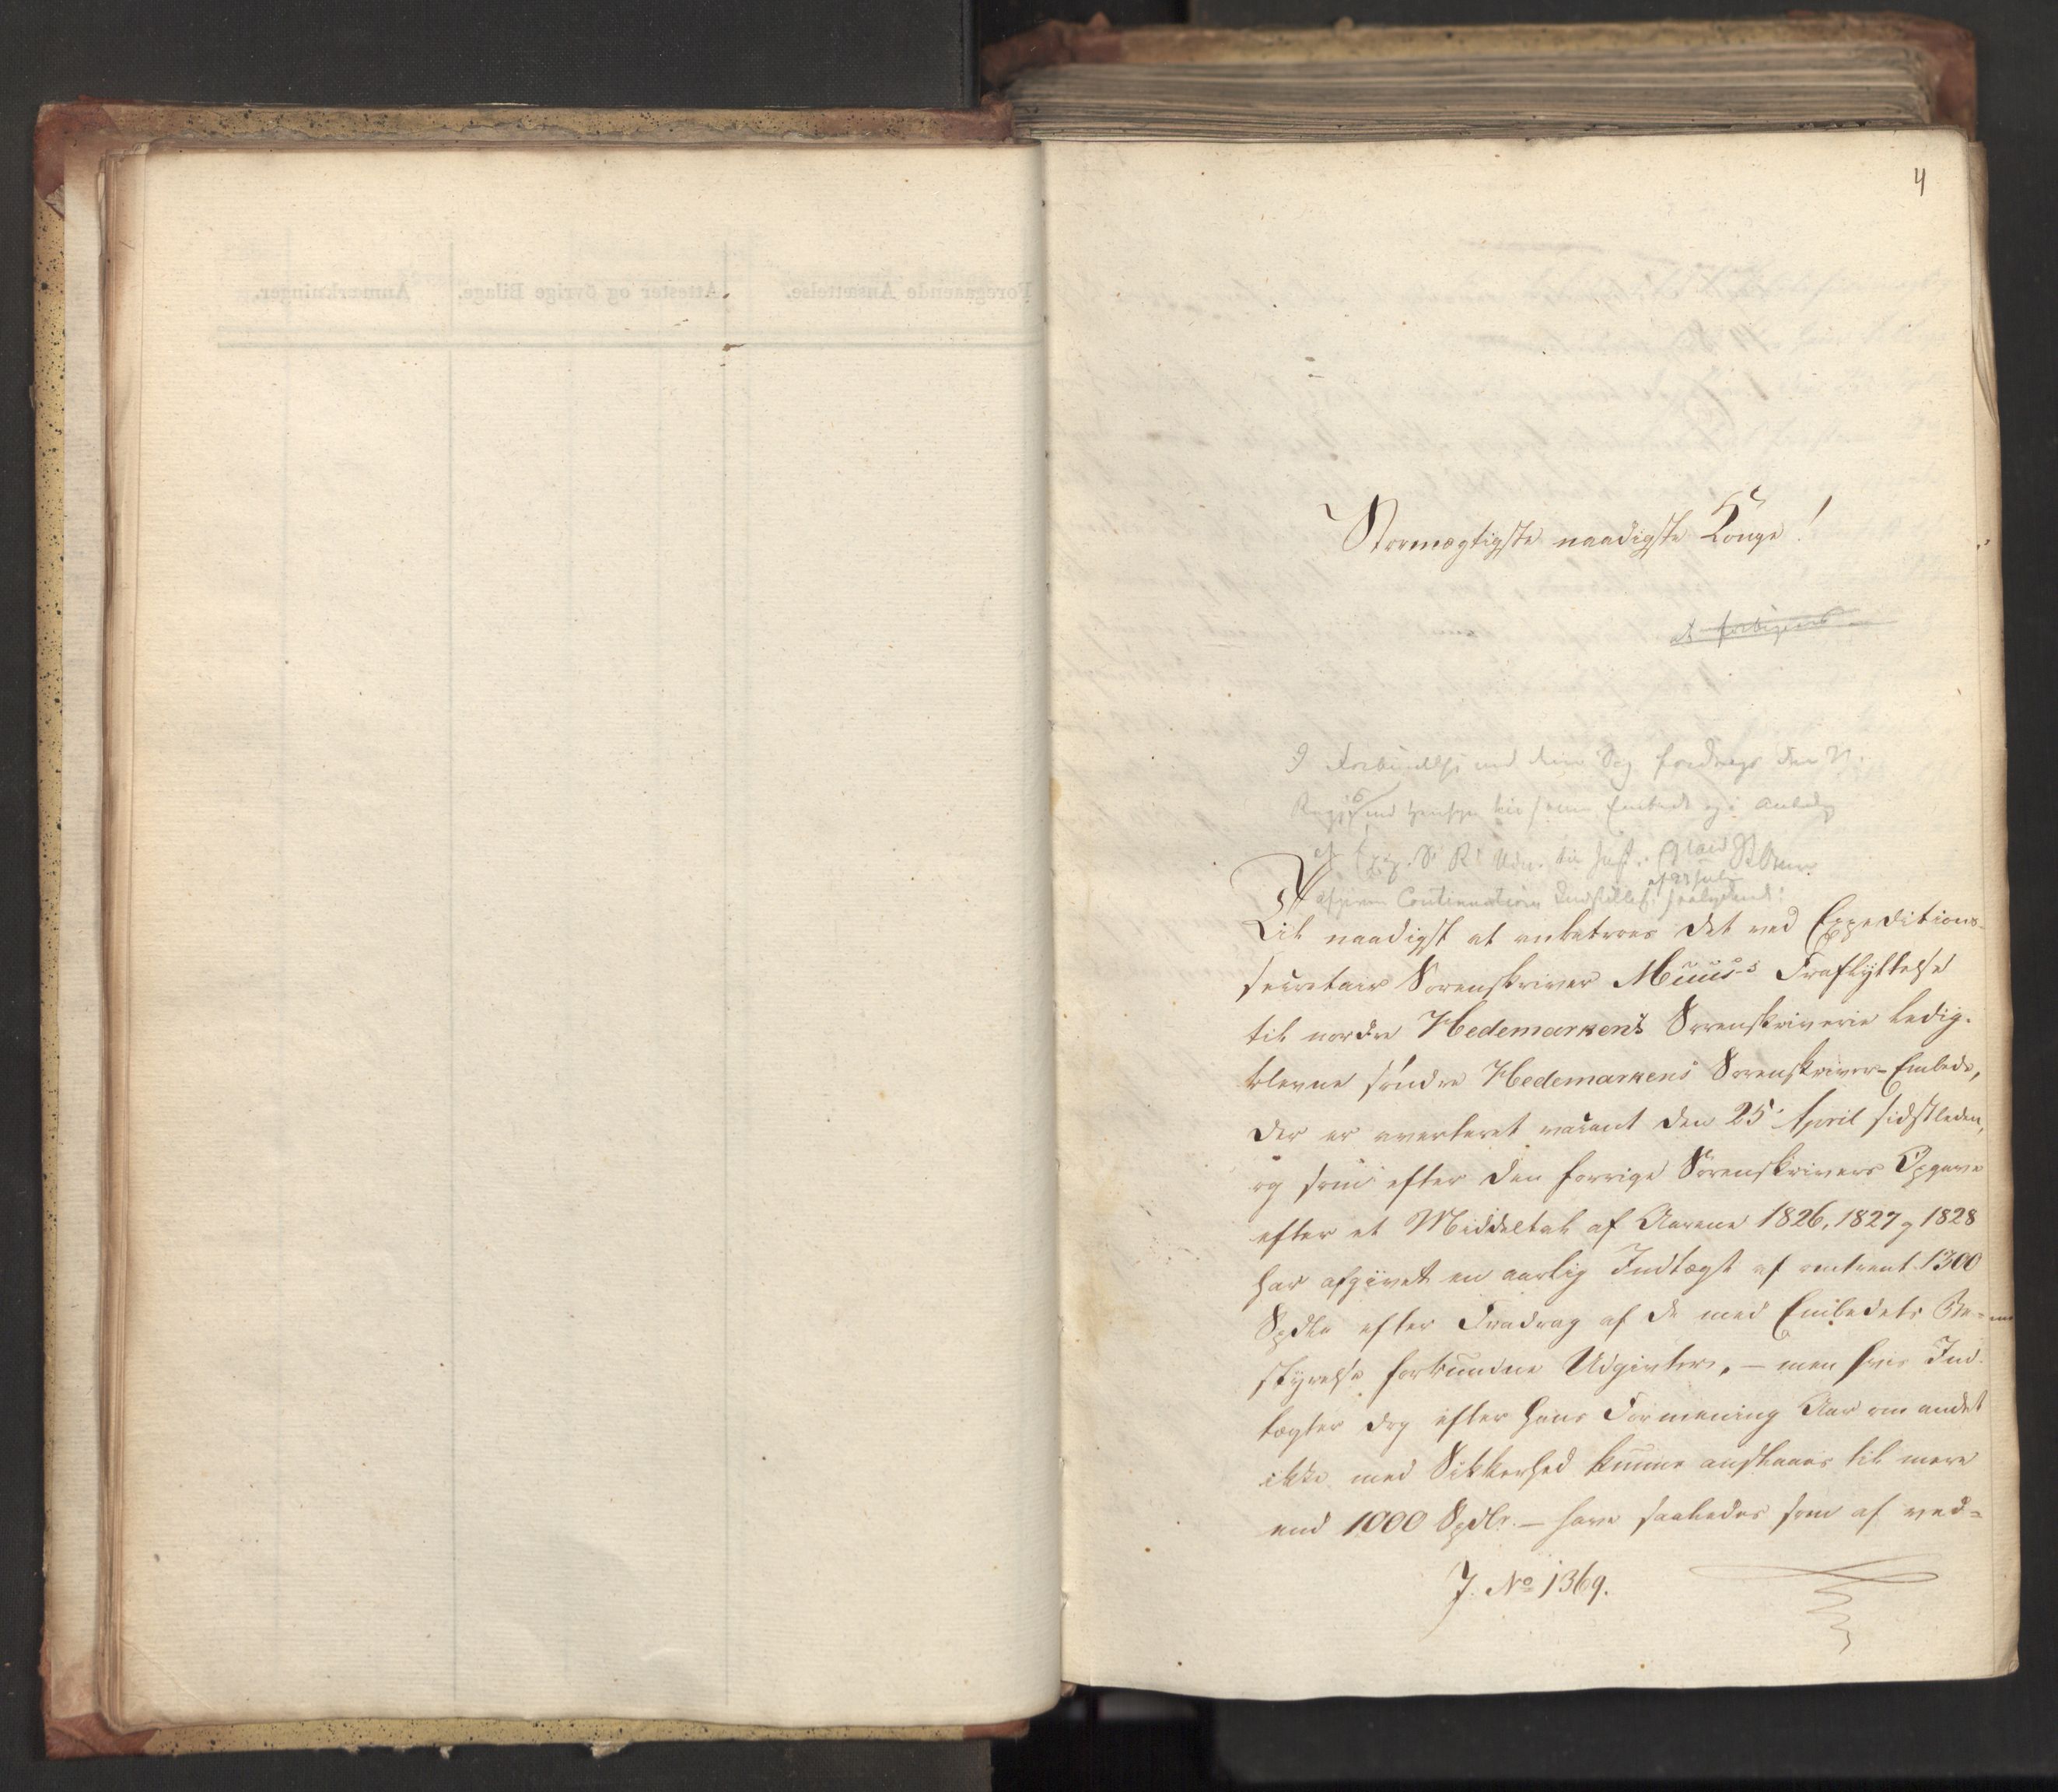 4
Stormægtigste naadigste Konge!
I Forbindelse med denne Sag foredrages den N.
Til naadigst at anbetroes det ved Expeditions-
secretair Sorenskriver Muus's Fraflyttelse
til nordre Hedemarkens Sorenskriverie ledig-
blevne søndre Hedemarkens Sorenskriver-Embede,
der er averteret vacant den 25 April sidstleden,
og som efter den forrige Sorenskrivers Opgave
efter et Middeltal af Aarene 1826, 1827 og 1828
har afgivet en aarlig Indtægt af omtrent 1300
Spdlr efter Fradrag af de med Embedets Be-
styrelse forbundne Udgivter, - men hvis Ind-
tægter dog efter hans Formening Aar om andet
ikke med Sikkerhed kunne anslaaes til mere
end 1000 Spdlr. - have saaledes som af ved-
J. No 1369.
Foregaaende Ansættelse.
Attester og övrige Bilage.
Anmærkninger.